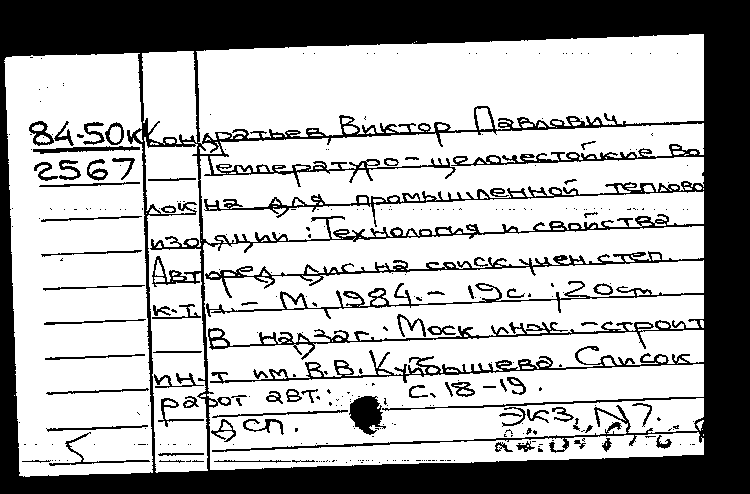 84-50к Кондратьев, Виктор Павлович.
2567 Температуро-щелочестойкие во
локна для промышленной теплово
изоляции: Технология и свойства.
Автореф. дис. на соиск. учен. степ.
к.т.н. - М., 1984. - 19с.; 20см.
В надзаг.: Моск. инж.-строит
ин-т им. В.В. Куйбышева. Список
работ авт.: с. 18-19.
ДСП. Экз. N7.